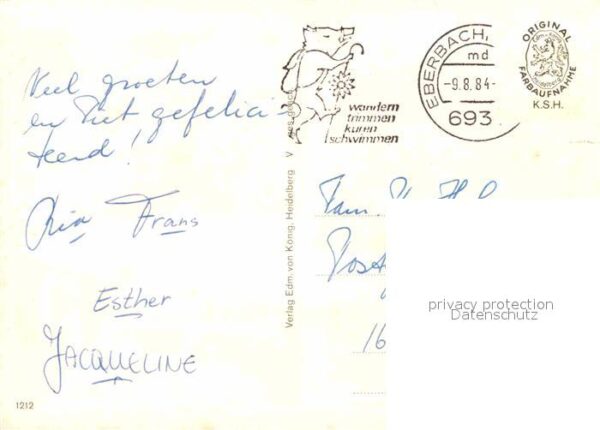 Veel groeten
en Piet gefelici-
teerd!
Ria Frans
Esther
JACQUELINE
1212
Verlag Edm. von König, Heidelberg V
wandern
trimmen
kuren
schwimmen
EBERBACH,
md
-9.8.84-
693
ORIGINAL
FARBAUFNAHME
K.S.H.
Fam.
Post
16
privacy protection
Datenschutz